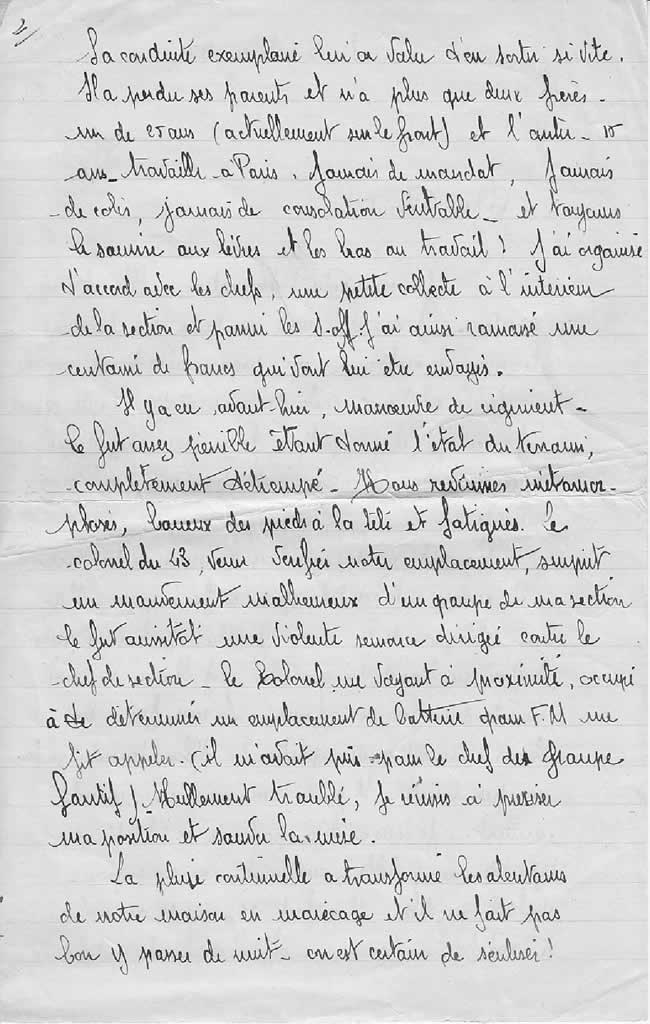 2/
Sa conduite exemplaire lui a valu d'en sortir si vite.
Il a perdu ses parents et n'a plus que deux frères -
un de 25 ans (actuellement sur le front) et l'autre - 15
ans - travaille à Paris. Jamais de mandat, Jamais
de colis, jamais de consolation véritable - et toujours
le sourire aux lèvres et les bras au travail ! J'ai organisé
d'accord avec les chefs, une petite collecte à l'intérieur
de la section et parmi les S-off. J'ai ainsi ramassé une
centaine de francs qui vont lui être envoyés.
Il y a eu, avant-hier, manoeuvre de régiment -
Ce fut assez pénible étant donné l'état du terrain,
complètement détrempé - Nous revînmes métamor-
phosés, boueux des pieds à la tête et fatigués. Le
colonel du 43, venu vérifier notre emplacement, surprit
un mouvement malheureux d'un groupe de ma section
Ce fut aussitôt une violente semonce dirigée contre le
chef de section - Le Colonel me voyant à proximité, occupé
à déterminer un emplacement de batterie pour F.M me
fit appeler. (il m'avait pris pour le chef de groupe
fautif) - Nullement troublé, Je réussis à préciser
ma position et sauver la mise.
La pluie continuelle a transformé les alentours
de notre maison en marécage et il ne fait pas
bon y passer de nuit - on est certain de s'enliser !